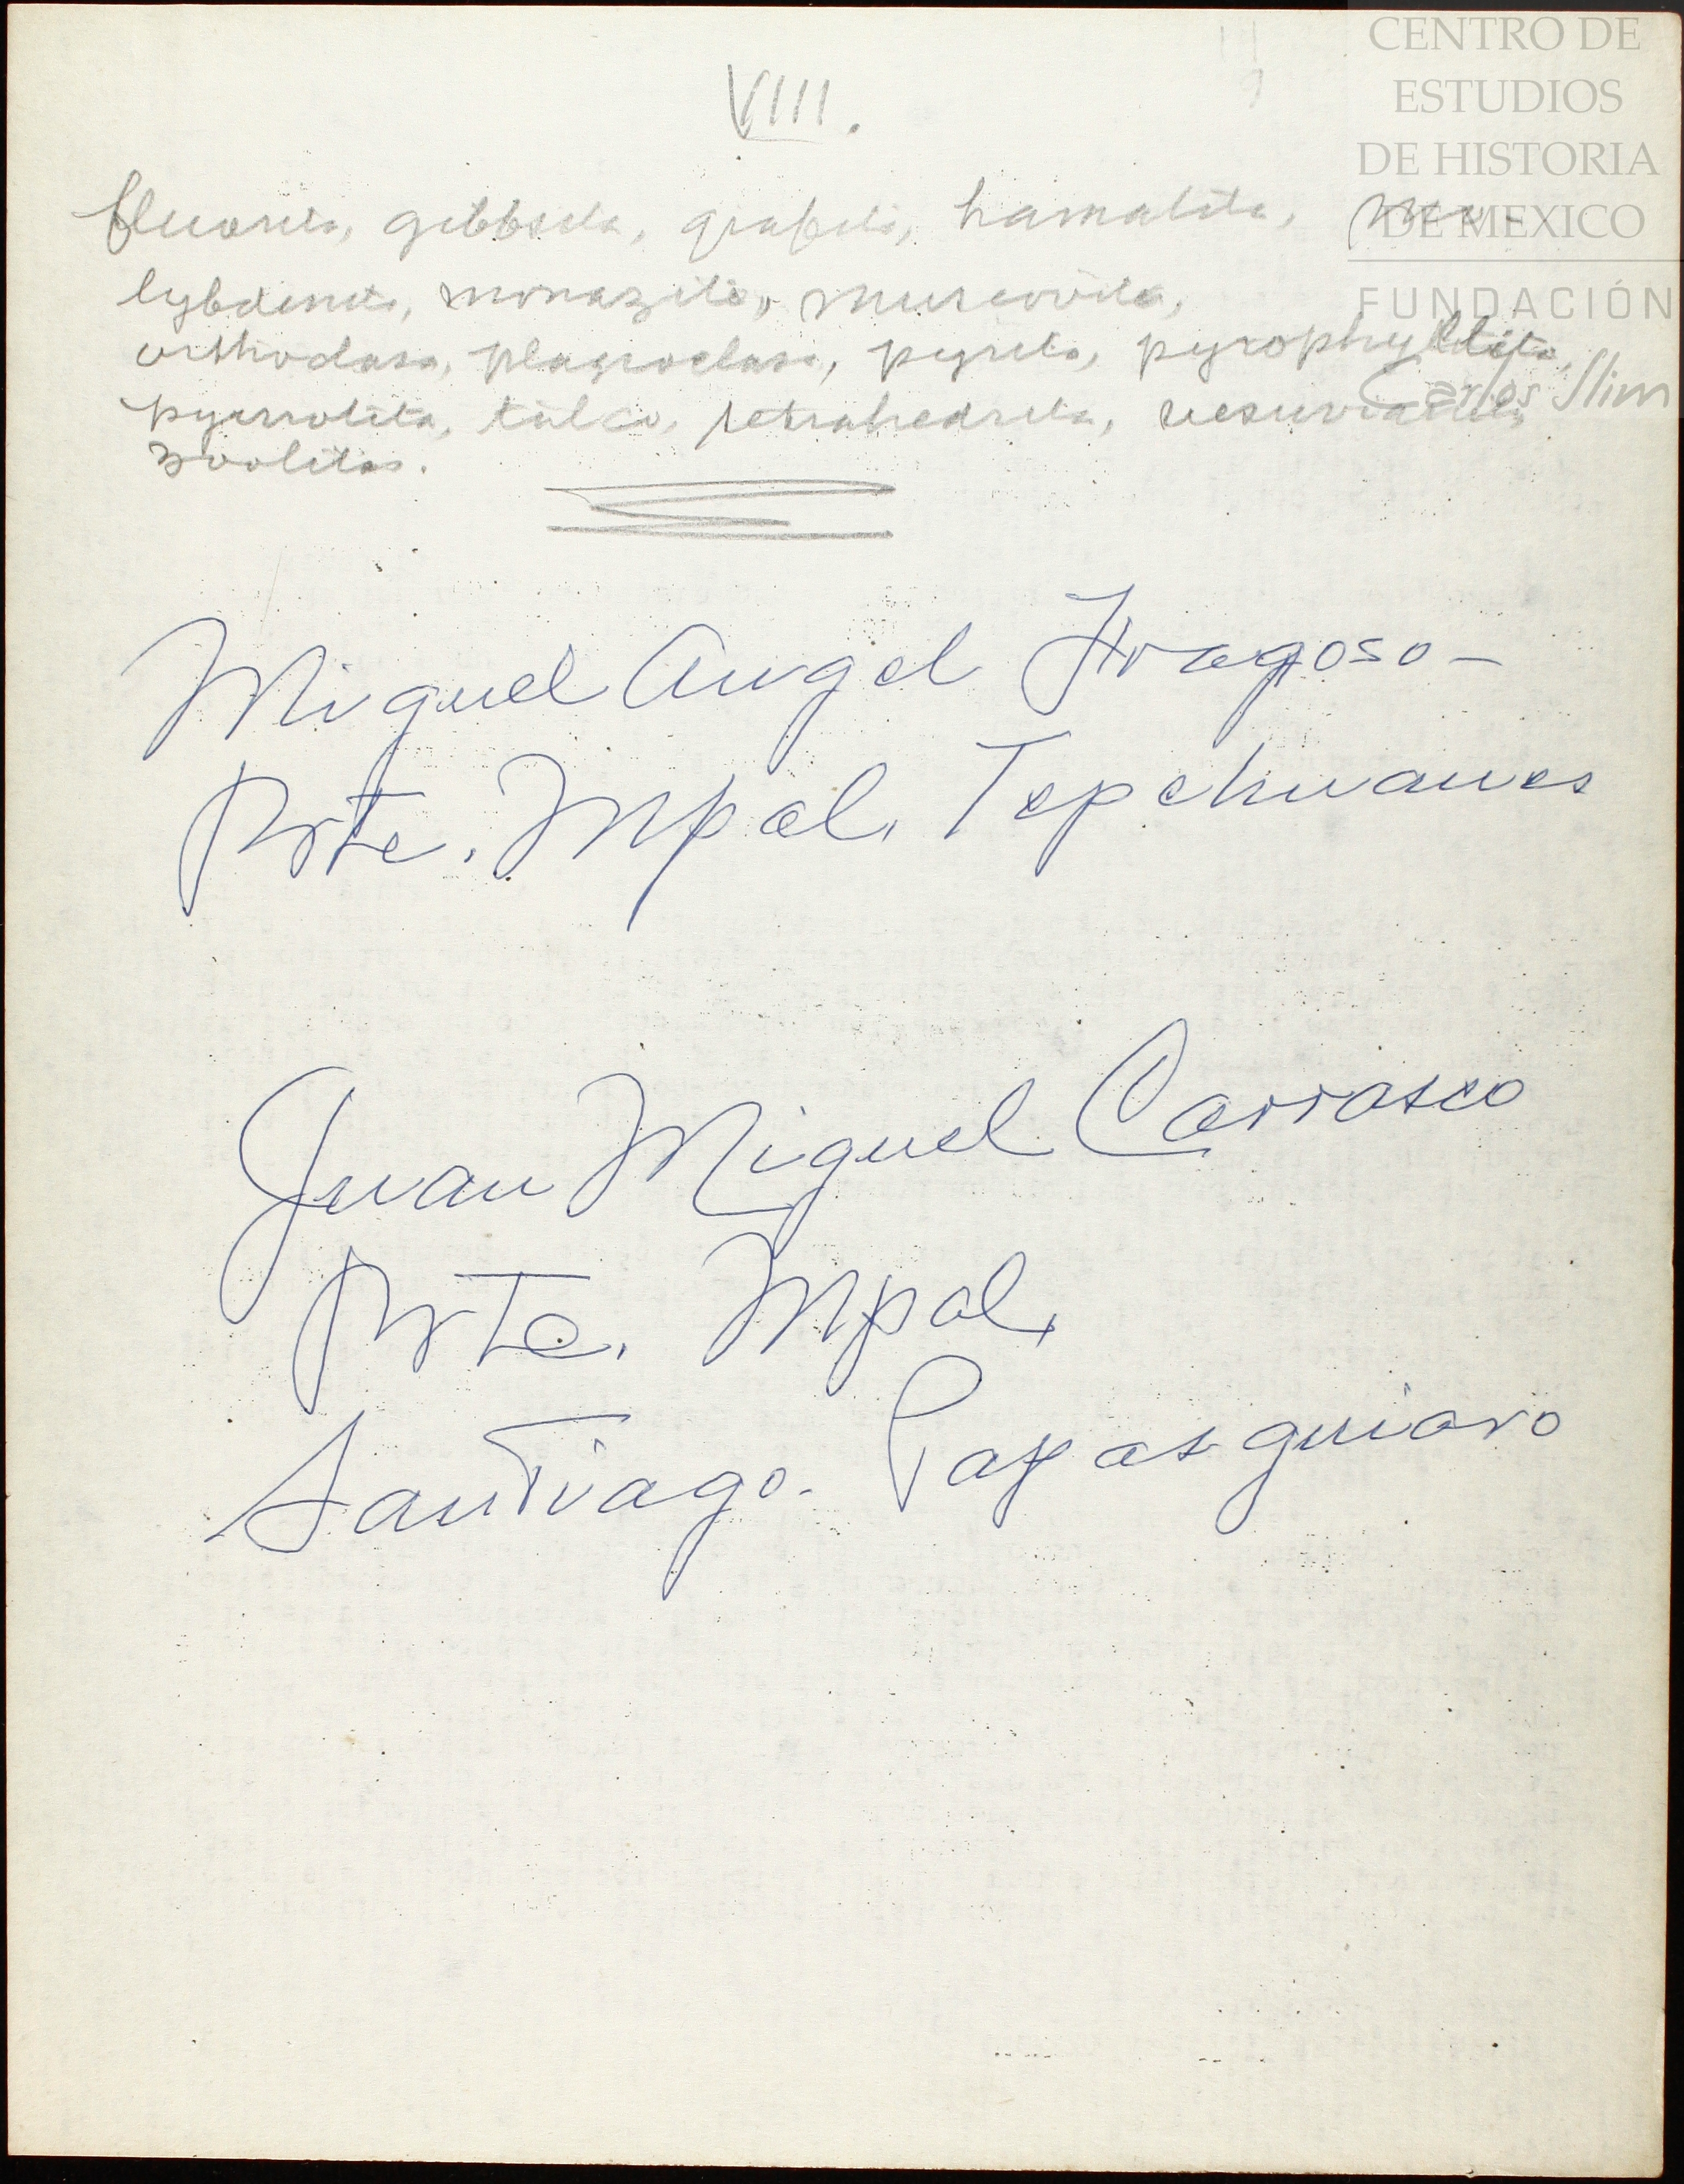 CENTRO DE
ESTUDIOS
DE HISTORIA
DE MEXICO
FUNDACIÓN
Carlos Slim
VIII.
fluorita, gibbsita, grafito, hamatita, mo-
lybdenita, monazita, muscovita,
orthoclasa, plagioclasa, pyrita, pyrophyllita,
pyrrotita, talco, tetrahedrita, vesuvianita,
zoolitas.
Miguel Angel Fragoso-
Prte. Mpal. Tepehuanes
Juan Miguel Carrasco
Prte. Mpal.
Santiago. Papasquiaro